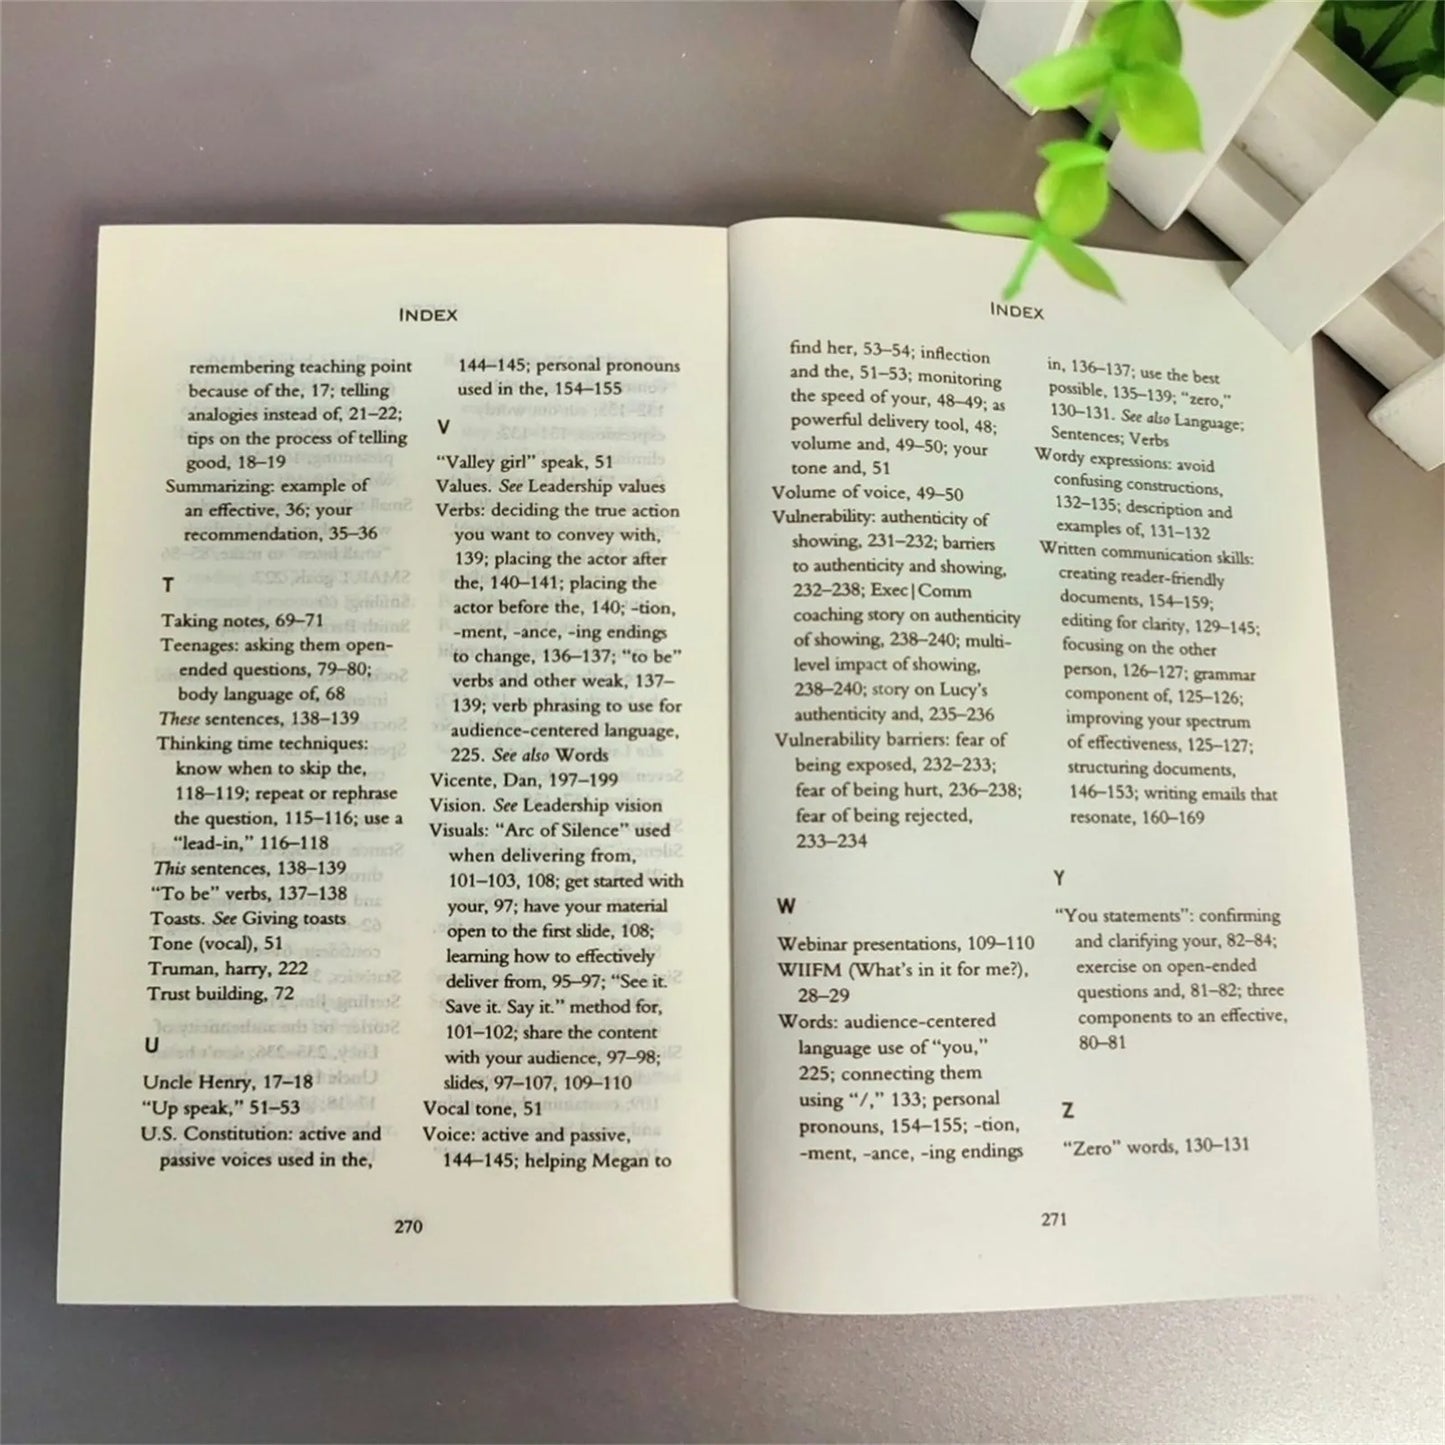 INDEX
remembering teaching point
because of the, 17; telling
analogies instead of, 21–22;
tips on the process of telling
good, 18–19
Summarizing: example of
an effective, 36; your
recommendation, 35–36
T
Taking notes, 69–71
Teenages: asking them open-
ended questions, 79–80;
body language of, 68
These sentences, 138–139
Thinking time techniques:
know when to skip the,
118–119; repeat or rephrase
the question, 115–116; use a
“lead-in,” 116–118
This sentences, 138–139
“To be” verbs, 137–138
Toasts. See Giving toasts
Tone (vocal), 51
Truman, harry, 222
Trust building, 72
U
Uncle Henry, 17–18
“Up speak,” 51–53
U.S. Constitution: active and
passive voices used in the,
144–145; personal pronouns
used in the, 154–155
V
“Valley girl” speak, 51
Values. See Leadership values
Verbs: deciding the true action
you want to convey with,
139; placing the actor after
the, 140–141; placing the
actor before the, 140; -tion,
-ment, -ance, -ing endings
to change, 136–137; “to be”
verbs and other weak, 137–
139; verb phrasing to use for
audience-centered language,
225. See also Words
Vicente, Dan, 197–199
Vision. See Leadership vision
Visuals: “Arc of Silence” used
when delivering from,
101–103, 108; get started with
your, 97; have your material
open to the first slide, 108;
learning how to effectively
deliver from, 95–97; “See it.
Save it. Say it.” method for,
101–102; share the content
with your audience, 97–98;
slides, 97–107, 109–110
Vocal tone, 51
Voice: active and passive,
144–145; helping Megan to
270
INDEX
find her, 53–54; inflection
and the, 51–53; monitoring
the speed of your, 48–49; as
powerful delivery tool, 48;
volume and, 49–50; your
tone and, 51
Volume of voice, 49–50
Vulnerability: authenticity of
showing, 231–232; barriers
to authenticity and showing,
232–238; Exec|Comm
coaching story on authenticity
of showing, 238–240; multi-
level impact of showing,
238–240; story on Lucy’s
authenticity and, 235–236
Vulnerability barriers: fear of
being exposed, 232–233;
fear of being hurt, 236–238;
fear of being rejected,
233–234
W
Webinar presentations, 109–110
WIIFM (What’s in it for me?),
28–29
Words: audience-centered
language use of “you,”
225; connecting them
using “/,” 133; personal
pronouns, 154–155; -tion,
-ment, -ance, -ing endings
in, 136–137; use the best
possible, 135–139; “zero,”
130–131. See also Language;
Sentences; Verbs
Wordy expressions: avoid
confusing constructions,
132–135; description and
examples of, 131–132
Written communication skills:
creating reader-friendly
documents, 154–159;
editing for clarity, 129–145;
focusing on the other
person, 126–127; grammar
component of, 125–126;
improving your spectrum
of effectiveness, 125–127;
structuring documents,
146–153; writing emails that
resonate, 160–169
Y
“You statements”: confirming
and clarifying your, 82–84;
exercise on open-ended
questions and, 81–82; three
components to an effective,
80–81
Z
“Zero” words, 130–131
271